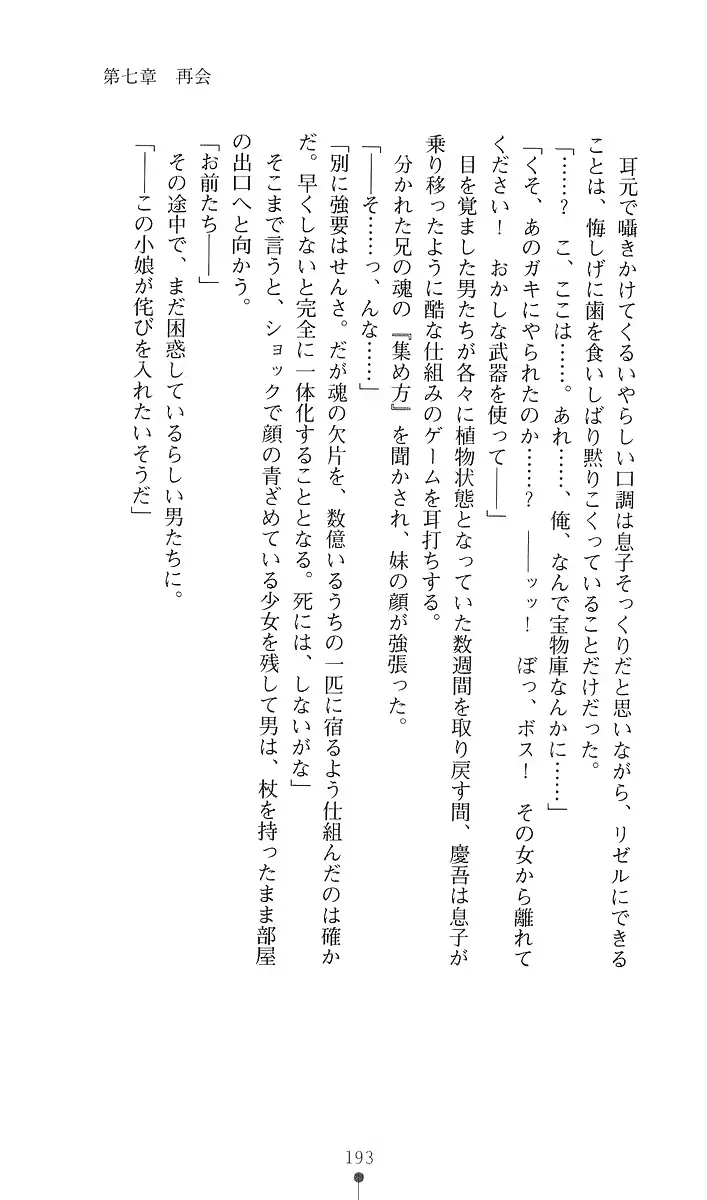 第七章　再会
　耳元で囁きかけてくるいやらしい口調は息子そっくりだと思いながら、リゼルにできる
ことは、悔しげに歯を食いしばり黙りこくっていることだけだった。
「……？　こ、ここは……。あれ……、俺、なんで宝物庫なんかに……」
「くそ、あのガキにやられたのか……？　――ッッ！　ぼっ、ボス！　その女から離れて
ください！　おかしな武器を使って――」
　目を覚ました男たちが各々に植物状態となっていた数週間を取り戻す間、慶吾は息子が
乗り移ったように酷な仕組みのゲームを耳打ちする。
　分かれた兄の魂の『集め方』を聞かされ、妹の顔が強張った。
「――そ……っ、んな……」
「別に強要はせんさ。だが魂の欠片を、数億いるうちの一匹に宿るよう仕組んだのは確か
だ。早くしないと完全に一体化することとなる。死には、しないがな」
　そこまで言うと、ショックで顔の青ざめている少女を残して男は、杖を持ったまま部屋
の出口へと向かう。
「お前たち――」
　その途中で、まだ困惑しているらしい男たちに。
「――この小娘が侘びを入れたいそうだ」
193